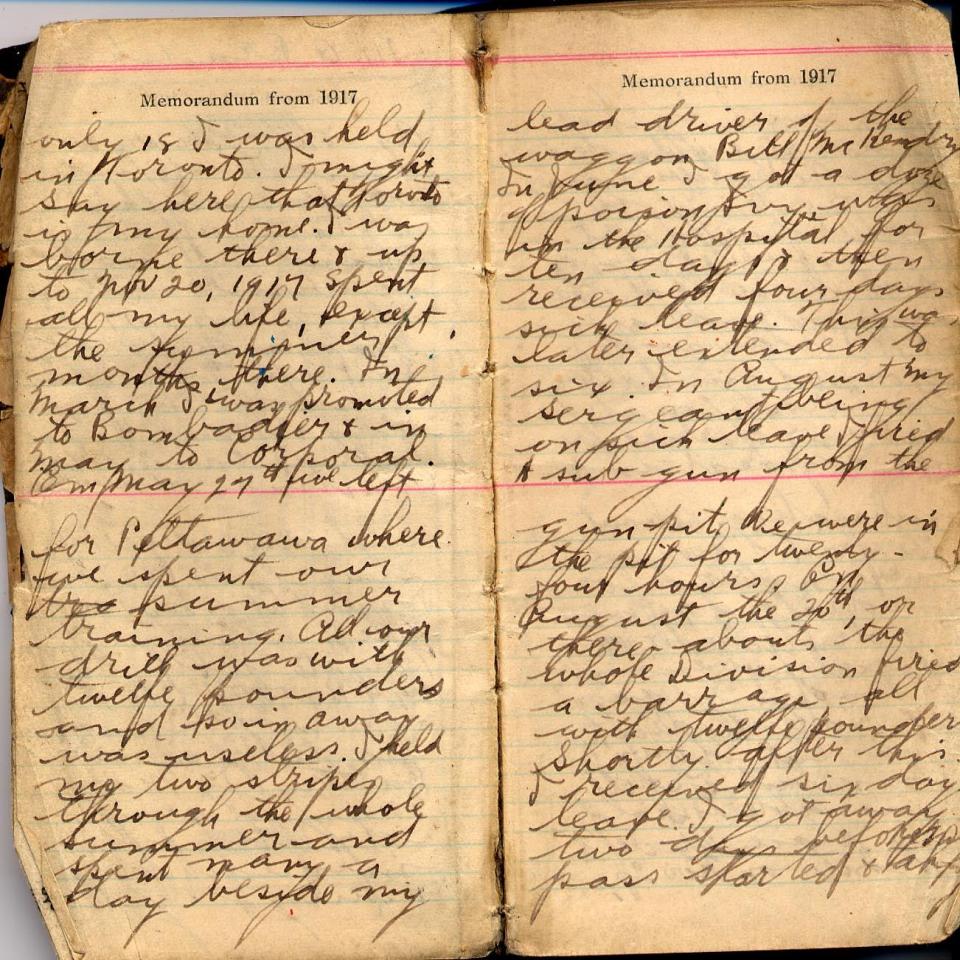 Memorandum from 1917
only 18 I was held
in Toronto. I might
say here that Toronto
is my home. I was
borne there & up
to Nov 20, 1917 spent
all my life, except
the summer
months there. In
March I was promoted
to Bombadier & in
May to Corporal.
On May 27th we left
for Pettawawa where
we spent our
summer
training. All our
drill was with
twelve pounders
and so in a way
was useless. I held
my two stripes
through the whole
summer and
spent many a
day beside my
Memorandum from 1917
lead driver of the
waggon Bill McKendry
In June I got a dose
of poison Ivy was
in the Hospital for
ten days & then
received four days
sick leave. This was
later extended to
six. In August my
sergeant being
on sick leave I fired
A sub gun from the
gun pit. We were in
the pit for twenty-
four hours. On
August the 20th, or
there abouts the
whole Division fired
a barrage all
with twelve pounder
Shortly after this
I received six day
leave. I got away
two days before
pass started &